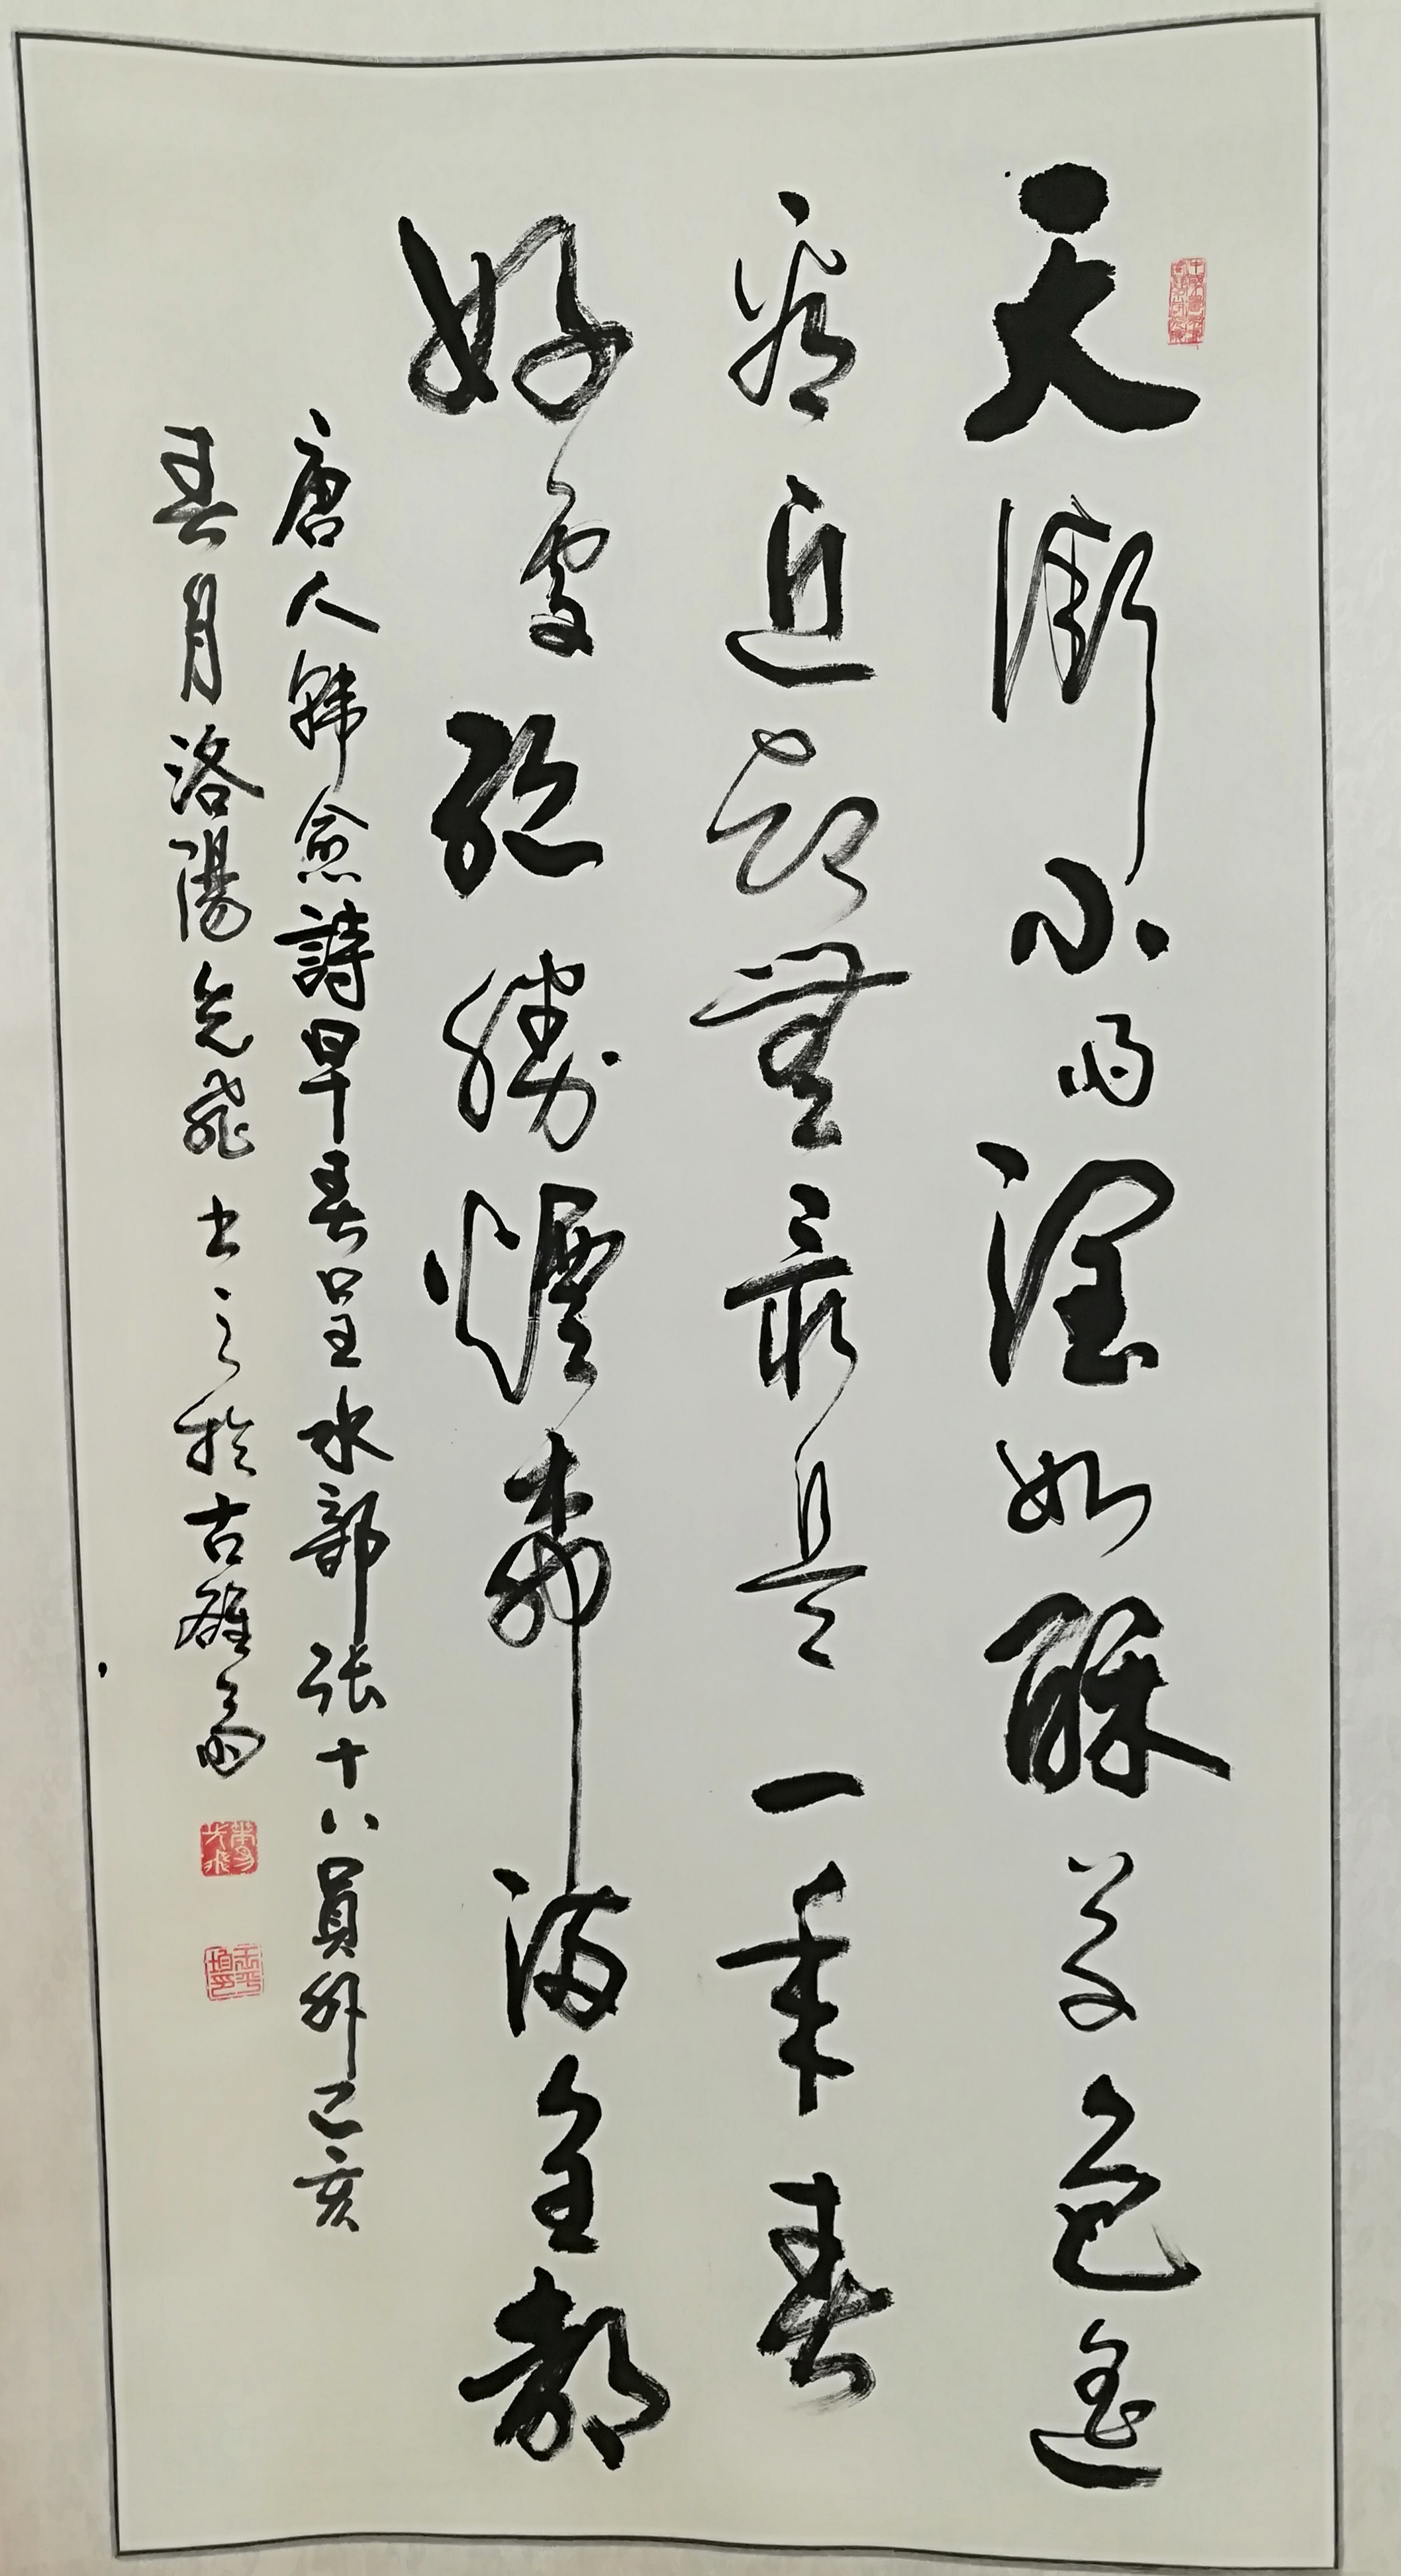 天街小雨潤如酥草色遙
看近却無最是一年春
好處絕勝煙柳滿皇都
唐人韓愈詩早春呈水部張十八員外己亥
春月洛陽先飛書之於古雒